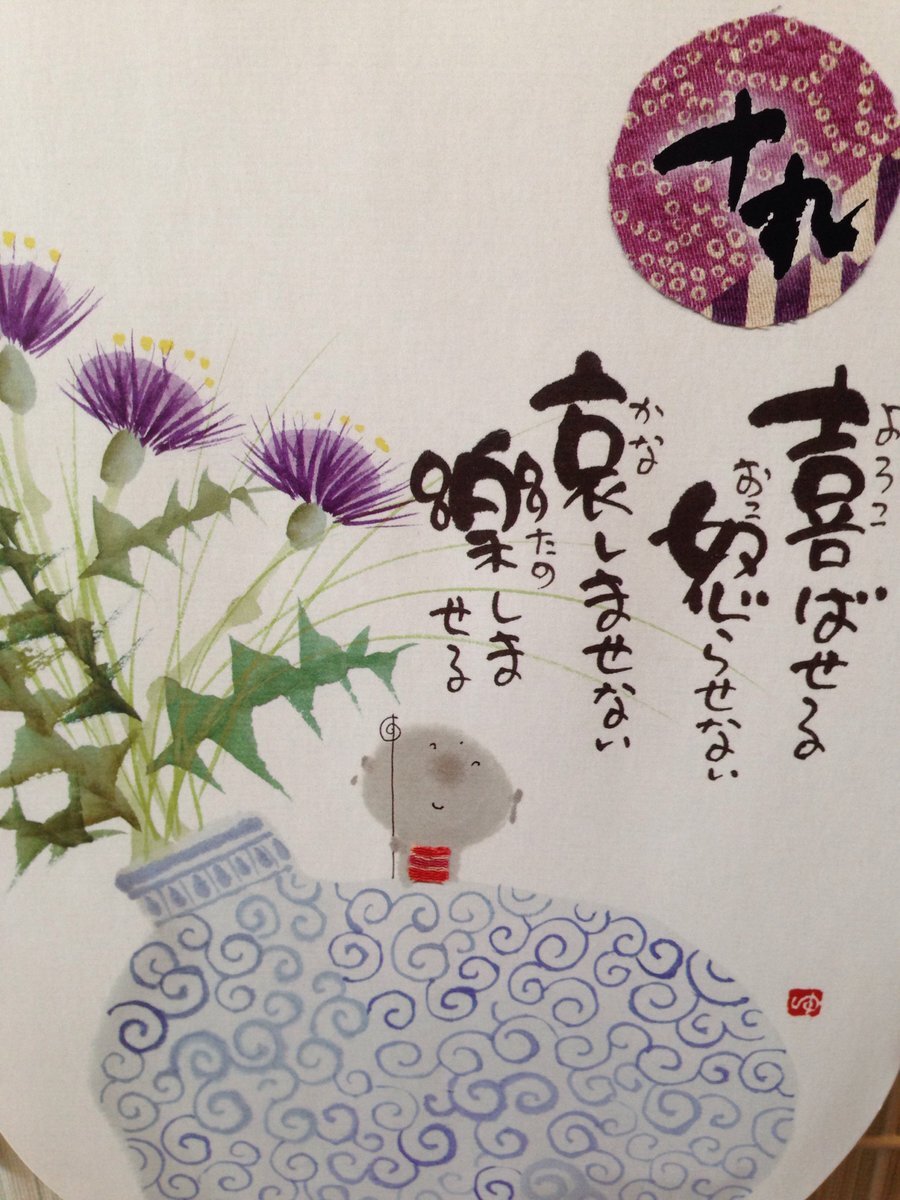 十九
よろこ
喜ばせる
おこ
怒らせない
かな
哀しませない
たの
樂しま
せる
ゆ